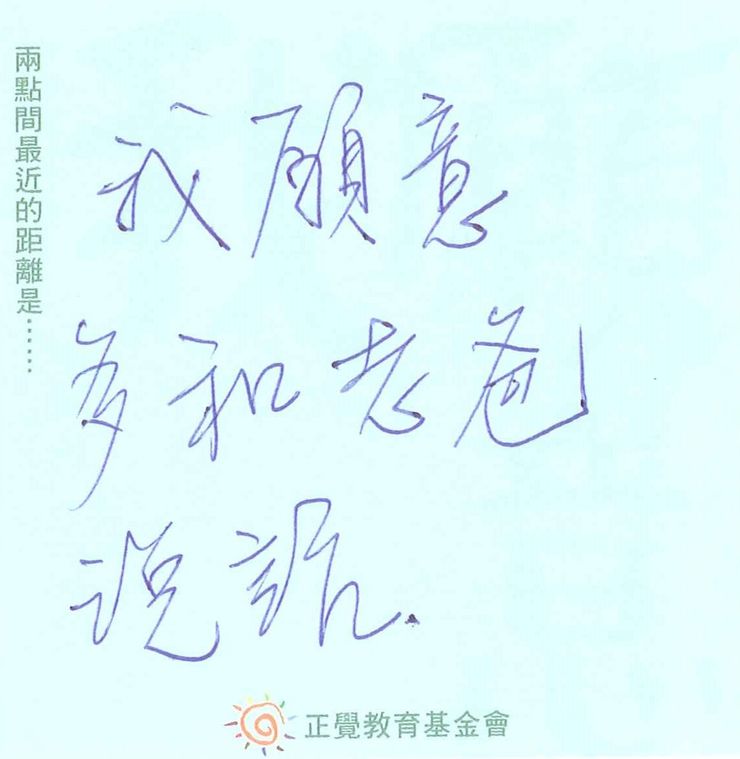 兩點間最近的距離是……
我願意
多和老爸
說話.
正覺教育基金會